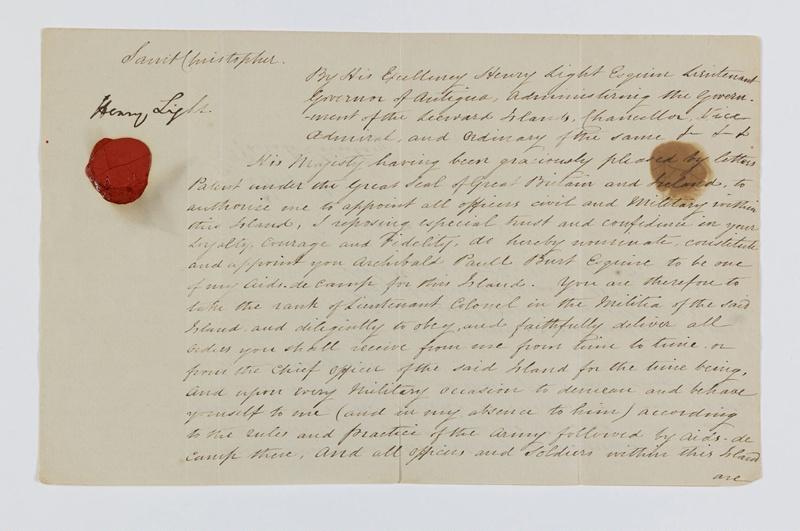 Saint Christopher.
By His Excellency Henry Light Esquire Lieutenant
Governor of Antigua, administering the Govern-
-ment of the Leeward Islands, Chancellor, Vice
Admiral, and Ordinary of the same &c &c &c
Henry Light.
His Majesty having been graciously pleased by letters
Patent under the Great Seal of Great Britain and Ireland, to
authorise me to appoint all officers civil and Military within
this Island, I reposing especial trust and confidence in your
Loyalty, Courage and Fidelity, do hereby nominate, constitute
and appoint you Archibald Paull Burt Esquire to be one
of my Aids-de Camp for this Island. You are therefore to
take the rank of Lieutenant Colonel in the Militia of the said
Island and diligently to obey, and faithfully deliver all
orders you shall receive from me from time to time or
from the Chief officer of the said Island for the time being,
And upon every Military occasion to demean and behave
yourself to me (and in my absence to him) according
to the rules and practice of the Army followed by aids-de
Camp there, And all officers and Soldiers within this Island
are